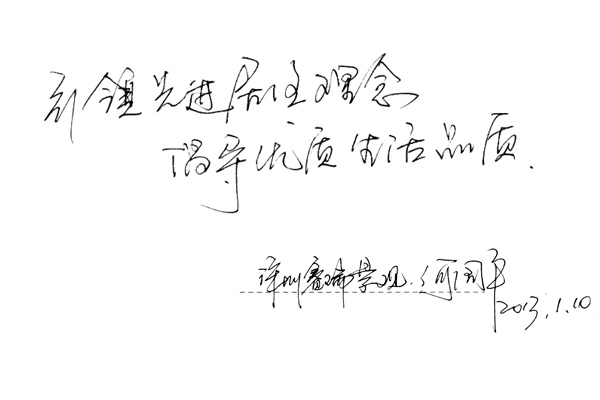 引领先进居住理念
倡导优质生活品质.
深圳赛瑞景观.何国平
2013.1.10